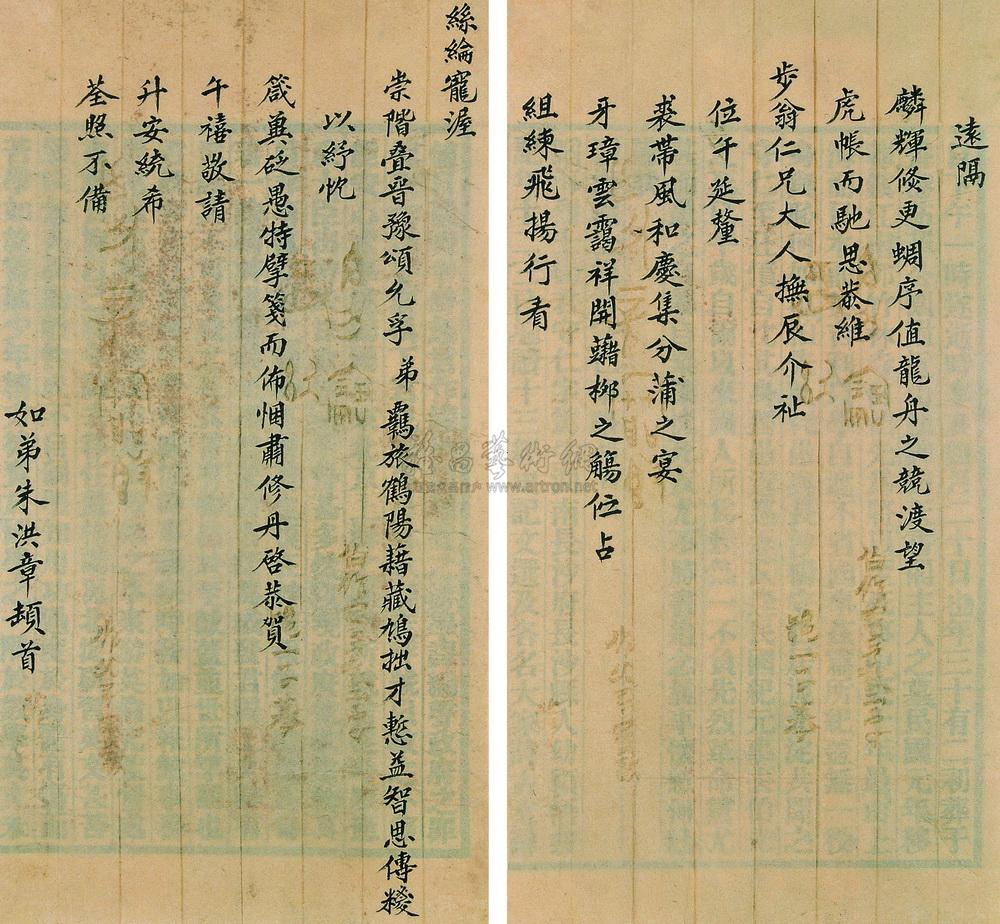 遠隔
麟輝倏更蜩序值龍舟之競渡望
虎帳而馳思恭維
步翁仁兄大人撫辰介祉
位午延釐
裘帶風和慶集分蒲之宴
牙璋雲靄祥開蘸柳之觴位占
組練飛揚行看
絲綸寵渥
崇階疊晉豫頌允孚弟羈旅鶴陽藉藏鳩拙才慙益智思傳糉
以紓忱
箴興砭愚特擘箋而佈悃肅修丹啓恭賀
午禧敬請
升安統希
荃照不備
如弟朱洪章頓首
www.artron.net